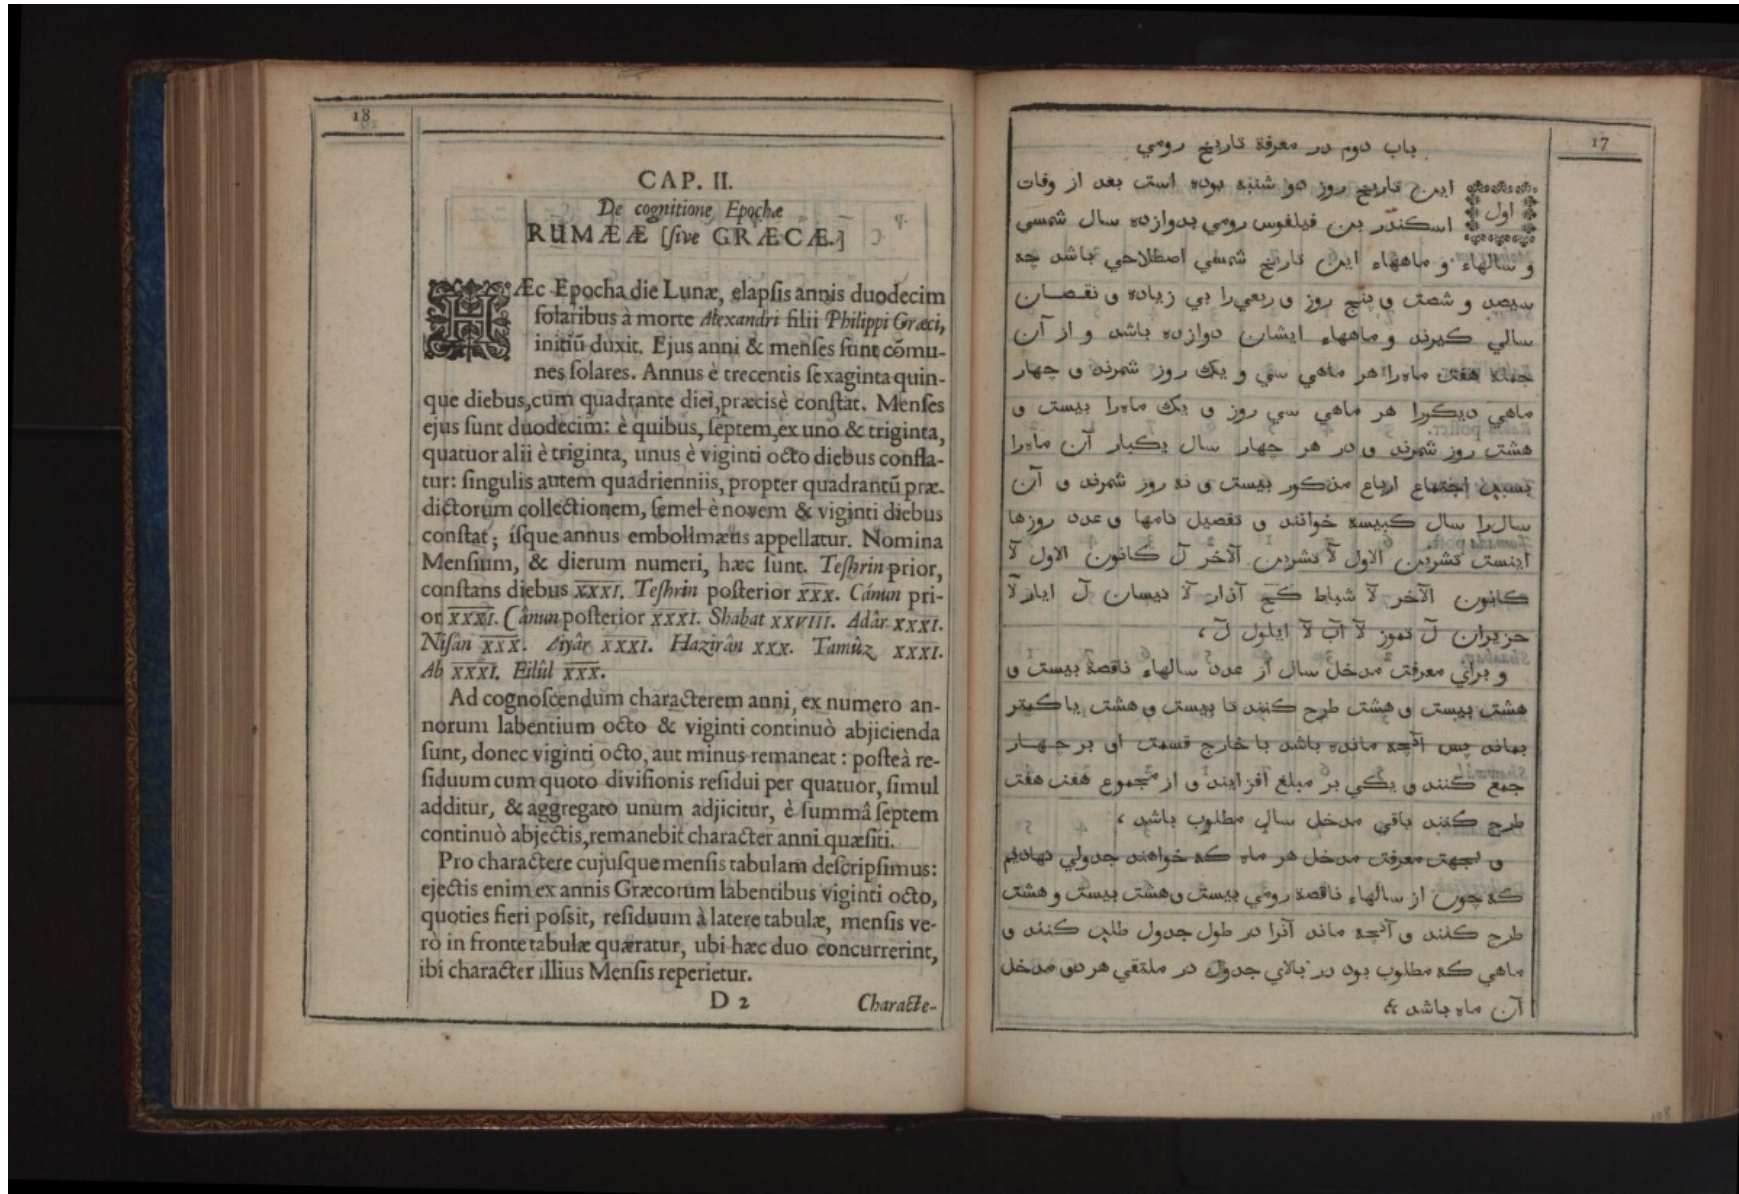 18
CAP. II.
De cognitione Epochæ
RUMÆÆ [ſive GRÆCÆ.]
HÆc Epocha die Lunæ, elapſis annis duodecim
ſolaribus à morte Alexandri filii Philippi Græci,
initiū duxit. Ejus anni & menſes ſunt cōmu-
nes ſolares. Annus è trecentis ſexaginta quin-
que diebus, cum quadrante diei, præcisè conſtat. Menſes
ejus ſunt duodecim: è quibus, ſeptem, ex uno & triginta,
quatuor alii è triginta, unus è viginti octo diebus confla-
tur: ſingulis autem quadrienniis, propter quadrantū præ-
dictorum collectionem, ſemel è novem & viginti diebus
conſtat; íſque annus embolimæus appellatur. Nomina
Menſium, & dierum numeri, hæc ſunt. Teſhrin prior,
conſtans diebus XXXI. Teſhrin poſterior XXX. Cánun pri-
or XXXI. Cânun poſterior XXXI. Shabat XXVIII. Adâr XXXI.
Niſân XXX. Aiyâr XXXI. Hazirân XXX. Tamûz XXXI.
Ab XXXI. Eilûl XXX.
Ad cognoſcendum characterem anni, ex numero an-
norum labentium octo & viginti continuò abjicienda
ſunt, donec viginti octo, aut minus remaneat: poſteà re-
ſiduum cum quoto diviſionis reſidui per quatuor, ſimul
additur, & aggregato unum adjicitur, è ſummâ ſeptem
continuò abjectis, remanebit character anni quæſiti.
Pro charactere cujuſque menſis tabulam deſcripſimus:
ejectis enim ex annis Græcorum labentibus viginti octo,
quoties fieri poſſit, reſiduum à latere tabulæ, menſis ve-
rò in fronte tabulæ quæratur, ubi hæc duo concurrerint,
ibi character illius Menſis reperietur.
D 2 Characte-
17
باب دوم در معرفة تاريخ رومي
اول اين تاريخ روز دو شنبه بوده است بعد از وفات
اسكندر بن فيلفوس رومي بدوازده سال شمسي
و سالهاء و ماههاء اين تاريخ شمسي اصطلاحي باشد چه
سيصد و شصت و پنج روز و ربعي را بي زياده و نقصان
سالي كيرند و ماههاء ايشان دوازده باشد و از آن
جمله هفت ماه را هر ماهي سي و يك روز شمرند و چهار
ماهي ديكررا هر ماهي سي روز و يك ماه را بيست و
هشت روز شمرند و در هر چهار سال يكبار آن ماه را
بسبب اجتماع ارباع مذكور بيست و نه روز شمرند و آن
سال را سال كبيسه خوانند و تفصيل نامها و عدد روزها
اينست تشرين الاول لآ تشرين الآخر ل كانون الاول لآ
كانون الآخر لآ شباط كح آذار لآ نيسان ل ايار لآ
حزيران ل تموز لآ آب لآ ايلول ل،
و براي معرفت مدخل سال از عدد سالهاء ناقصة بيست و
هشت بيست و هشت طرح كنند تا بيست و هشت يا كمتر
بماند پس آنچه مانده باشد با خارج قسمت او بر چهار
جمع كنند و يكي بر مبلغ افزايند و از مجموع هفت هفت
طرح كنند باقي مدخل سال مطلوب باشد،
و بجهت معرفت مدخل هر ماه كه خواهند جدولي نهاديم
كه چون از سالهاء ناقصة رومي بيست و هشت بيست و هشت
طرح كنند و آنچه ماند آنرا در طول جدول طلب كنند و
ماهي كه مطلوب بود در بالاي جدول در ملتقي هر دو مدخل
آن ماه باشد